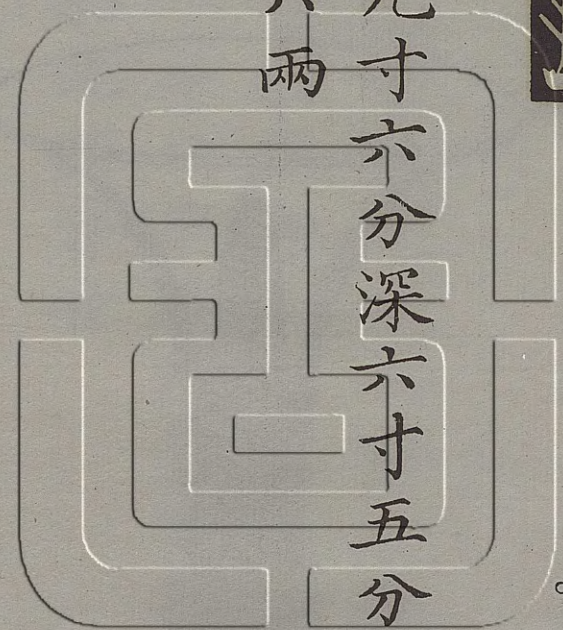 寸六分深六寸五分
兩